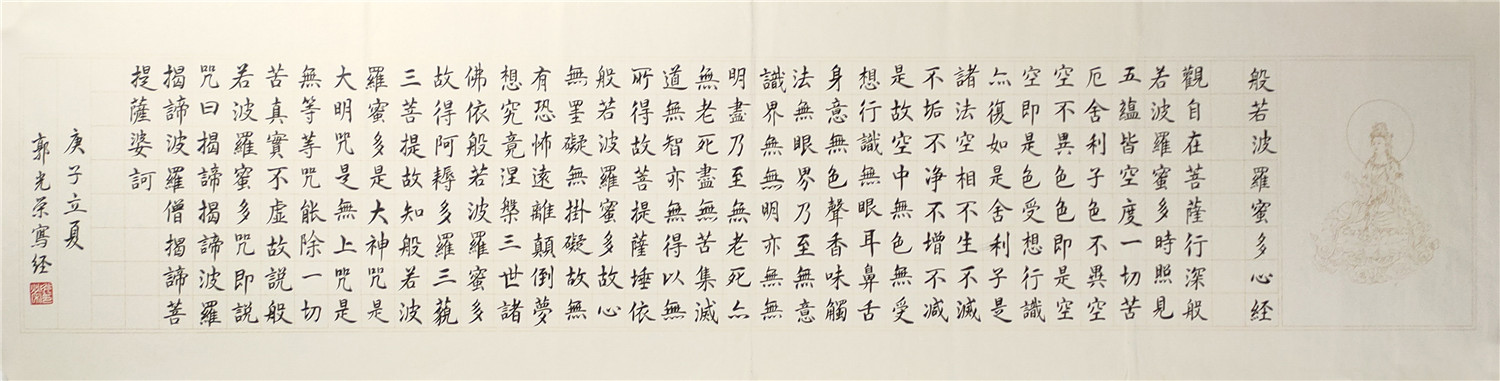 般若波羅蜜多心经
觀自在菩薩行深般
若波羅蜜多時照見
五蘊皆空度一切苦
厄舍利子色不異空
空不異色色即是空
空即是色受想行識
亦復如是舍利子是
諸法空相不生不滅
不垢不净不增不減
是故空中無色無受
想行識無眼耳鼻舌
身意無色聲香味觸
法無眼界乃至無意
識界無無明亦無無
明盡乃至無老死亦
無老死盡無苦集滅
道無智亦無得以無
所得故菩提薩埵依
般若波羅蜜多故心
無罣礙無掛礙故無
有恐怖遠離顛倒夢
想究竟涅槃三世諸
佛依般若波羅蜜多
故得阿耨多羅三藐
三菩提故知般若波
羅蜜多是大神咒是
大明咒是無上咒是
無等等咒能除一切
苦真實不虛故説般
若波羅蜜多咒即説
咒曰揭諦揭諦波羅
揭諦波羅僧揭諦菩
提薩婆訶
庚子立夏
郭光荣寫经